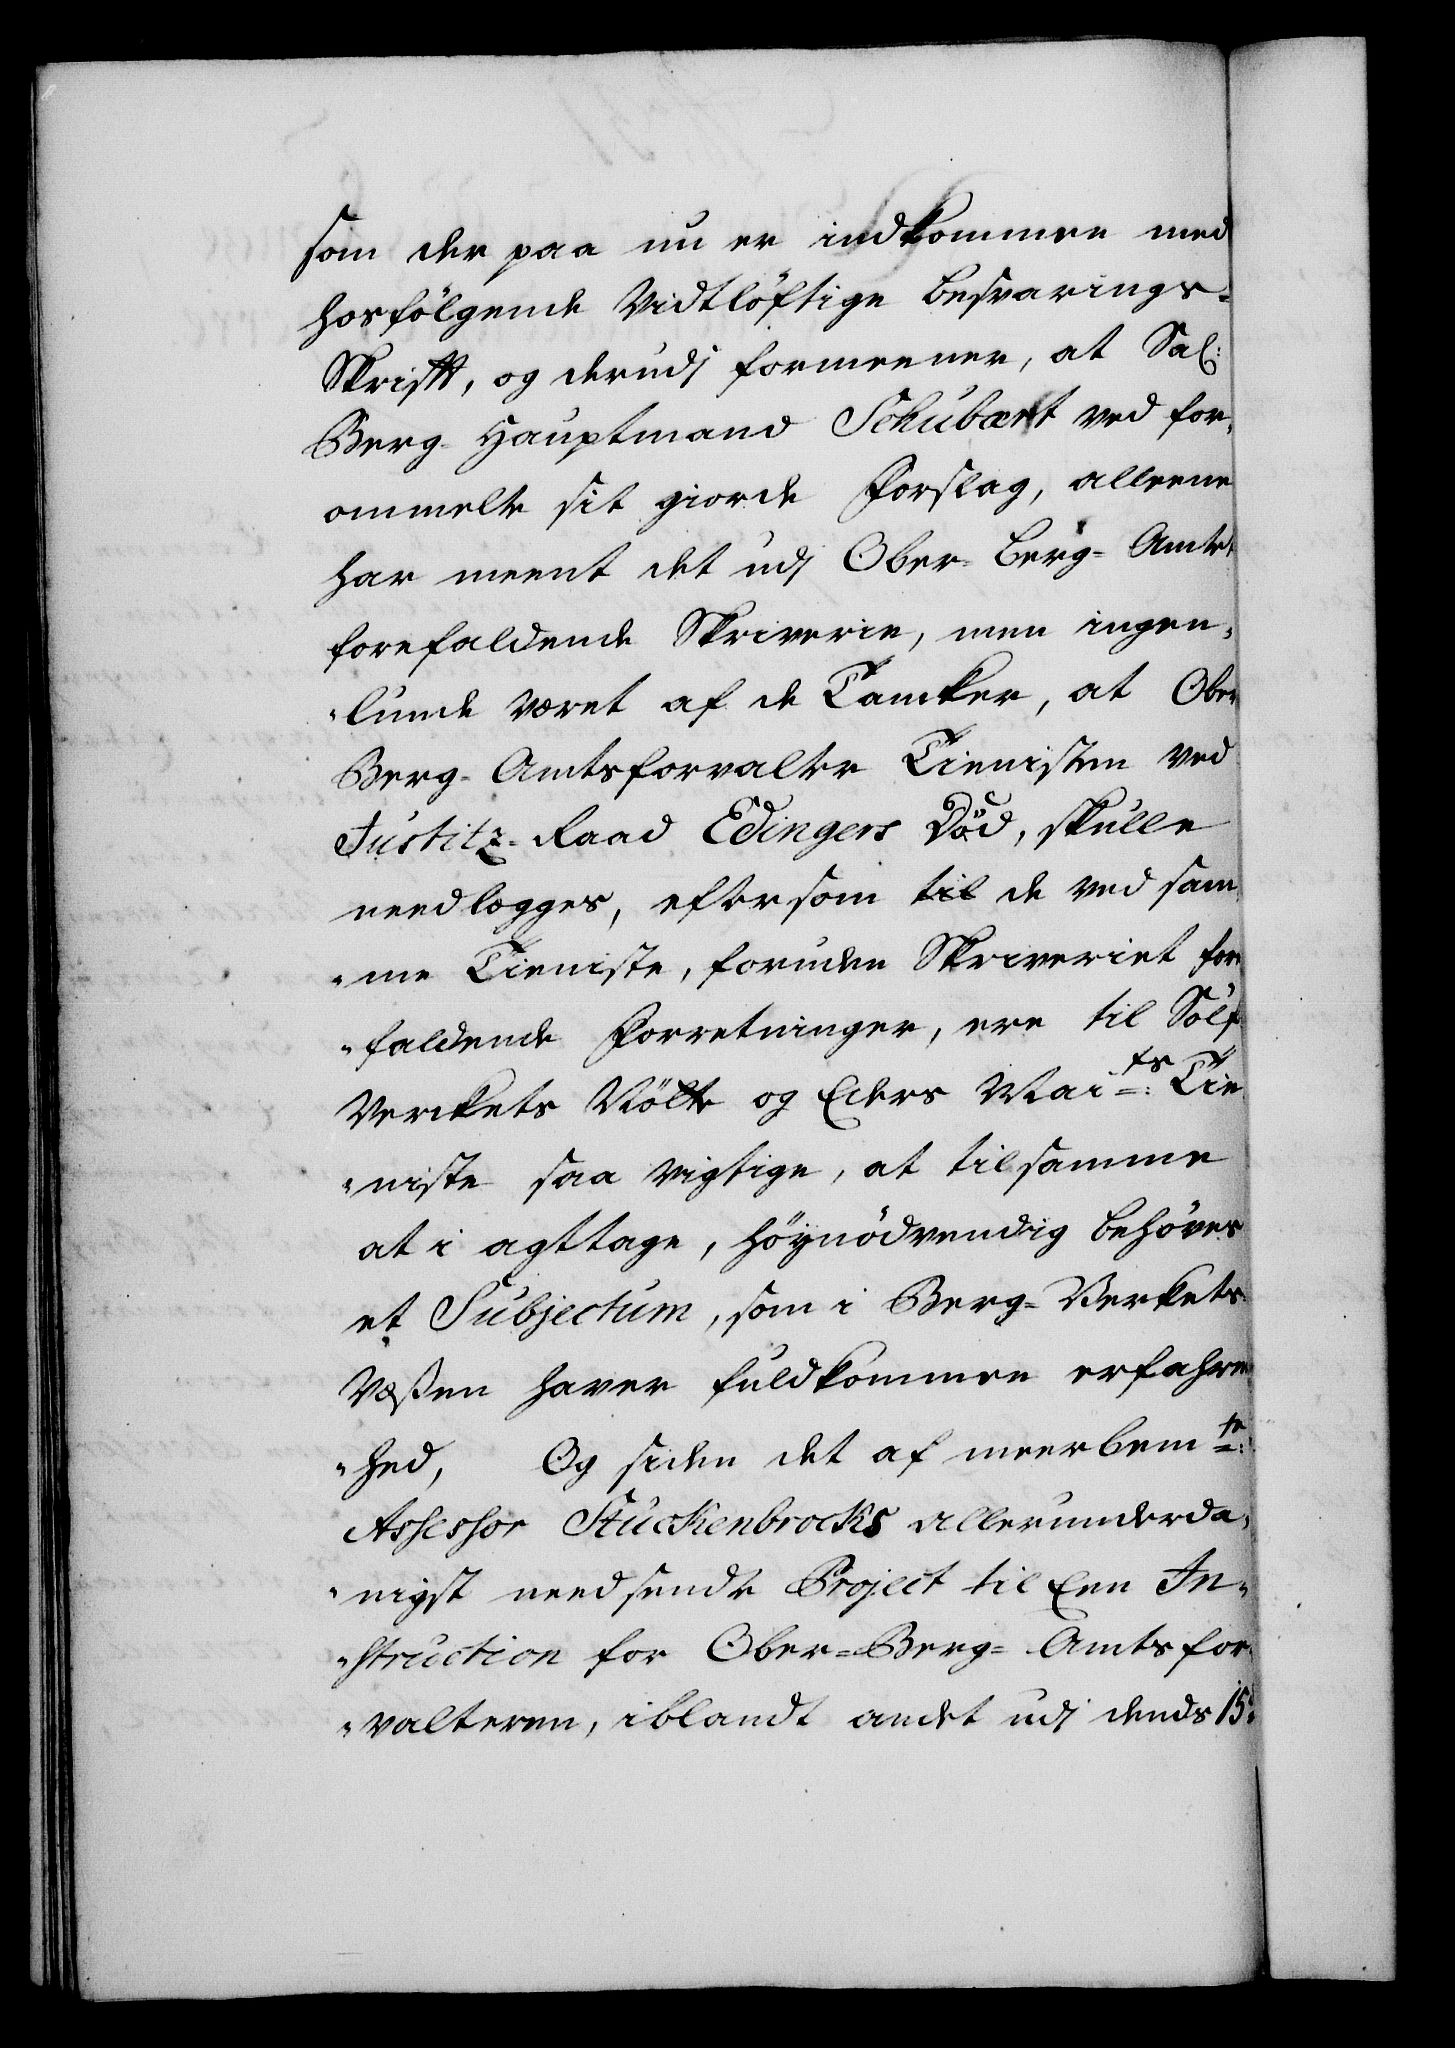 som der paa nu er indkommen med
hosfölgende Vidtlöftige Besvarings-
Skrifft, og derudj formeener, at Sal:
Berg-Hauptmand Schubart ved for-
ommelte sit giorde Forslag, alleene
har meent det udj Ober-Berg-Amtet
forefaldende Skriverie, men ingen-
-lunde været af de Tancker, at Ober
Berg-Amtsforvalter Tienisten ved
Justitz-Raad Edingers Död, skulle
needlegges, eftersom til de ved sam-
-me Tieniste, foruden Skriveriet fore
-faldende Forretninger, ere til Sölf-
Verckets Nötte og Eders Mai=ts: Tie
-niste saa vigtige, at til samme
at i agttage, höynödvendig behöves
et Subjectum, som i Berg-Verkets
Væßen haver fuldkommen erfahren-
-hed, Og siden det af meerbem=te:
Assessor Stuckenbrocks allerunderda-
-nigst needsendte Project til Een In-
-struction for Ober-Berg-Amtsfor-
-valteren, iblandt andet udj dends 15d